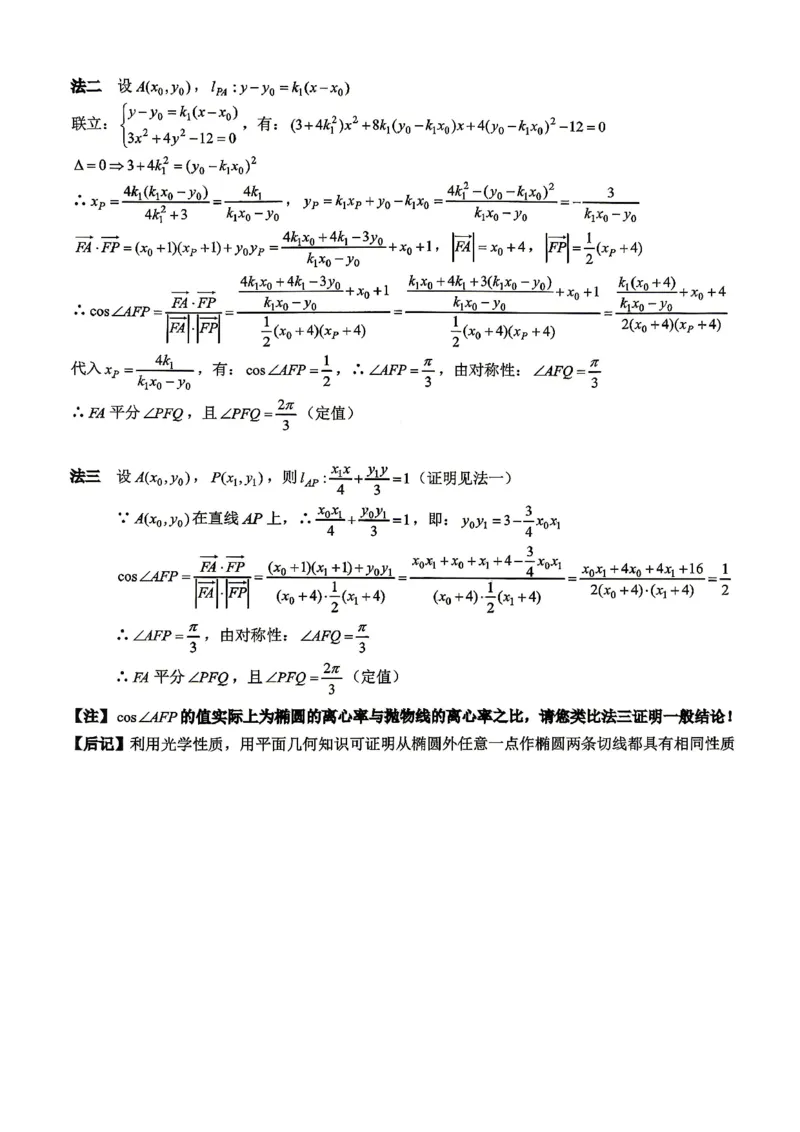 法二 设 A(x₀,y₀)，l_PA : y−y₀ = k₁(x−x₀)
联立：{y−y₀ = k₁(x−x₀) ; 3x²+4y²−12=0，有：(3+4k₁²)x²+8k₁(y₀−k₁x₀)x+4(y₀−k₁x₀)²−12=0
Δ=0⇒3+4k₁²=(y₀−k₁x₀)²
∴ x_P = 4k₁(k₁x₀−y₀)/(4k₁²+3) = 4k₁/(k₁x₀−y₀)，y_P = k₁x_P+y₀−k₁x₀ = (4k₁²−(y₀−k₁x₀)²)/(k₁x₀−y₀) = −3/(k₁x₀−y₀)
FA·FP = (x₀+1)(x_P+1)+y₀y_P = (4k₁x₀+4k₁−3y₀)/(k₁x₀−y₀)+x₀+1，|FA| = x₀+4，|FP| = 1/2(x_P+4)
∴ cos∠AFP = FA·FP/(|FA|·|FP|) = ((4k₁x₀+4k₁−3y₀)/(k₁x₀−y₀)+x₀+1)/(1/2(x₀+4)(x_P+4)) = ((k₁x₀+4k₁+3(k₁x₀−y₀))/(k₁x₀−y₀)+x₀+1)/(1/2(x₀+4)(x_P+4)) = (k₁(x₀+4)/(k₁x₀−y₀)+x₀+4)/(2(x₀+4)(x_P+4))
代入 x_P = 4k₁/(k₁x₀−y₀)，有：cos∠AFP = 1/2，∴∠AFP = π/3，由对称性：∠AFQ = π/3
∴ FA 平分∠PFQ，且∠PFQ = 2π/3（定值）
法三 设 A(x₀,y₀)，P(x₁,y₁)，则 l_AP : x₁x/4 + y₁y/3 = 1（证明见法一）
∵ A(x₀,y₀)在直线 AP 上，∴ x₀x₁/4 + y₀y₁/3 = 1，即：y₀y₁ = 3−3/4x₀x₁
cos∠AFP = FA·FP/(|FA|·|FP|) = ((x₀+1)(x₁+1)+y₀y₁)/((x₀+4)·1/2(x₁+4)) = (x₀x₁+x₀+x₁+4−3/4x₀x₁)/((x₀+4)·1/2(x₁+4)) = (x₀x₁+4x₀+4x₁+16)/(2(x₀+4)·(x₁+4)) = 1/2
∴∠AFP = π/3，由对称性：∠AFQ = π/3
∴ FA 平分∠PFQ，且∠PFQ = 2π/3（定值）
【注】cos∠AFP 的值实际上为椭圆的离心率与抛物线的离心率之比，请您类比法三证明一般结论！
【后记】利用光学性质，用平面几何知识可证明从椭圆外任意一点作椭圆两条切线都具有相同性质